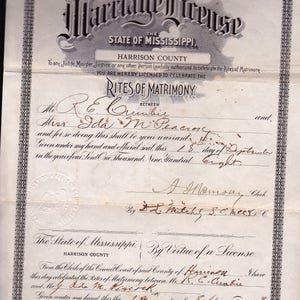 Marriage License
THE
STATE OF MISSISSIPPI,
HARRISON COUNTY
To any Judge, Minister, Justice or any other Person lawfully authorized to celebrate the Rites of Matrimony
YOU ARE HEREBY LICENSED TO CELEBRATE THE
RITES OF MATRIMONY
BETWEEN
Mr. R E and
Miss Ida M
and for so doing this shall be your warrant.
Given under my hand and official seal this 15 day of September
in the year of our Lord One Thousand Nine Hundred Eight
Clerk
By D.C.
The State of Mississippi
HARRISON COUNTY
By Virtue of a License
From the Clerk of the Circuit Court of said County of Harrison I have
this day celebrated the Rites of Matrimony between Mr. R. E.
and M Ida M.
Given under my hand this